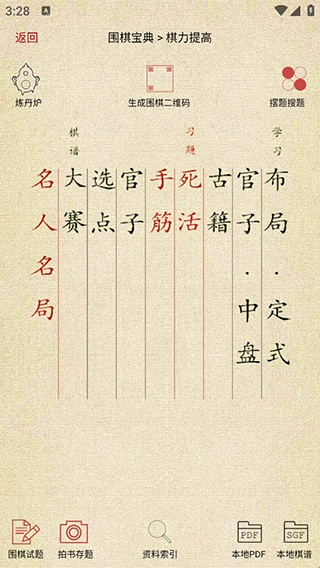 3:28
返回
围棋宝典 > 棋力提高
炼丹炉
生成围棋二维码
摆题搜题
学习
布局·定式
官子·中盘
古籍
习题
死活
手筋
官子
选点
棋谱
大赛
名人名局
围棋试题
拍书存题
资料索引
PDF
本地PDF
SGF
本地棋谱